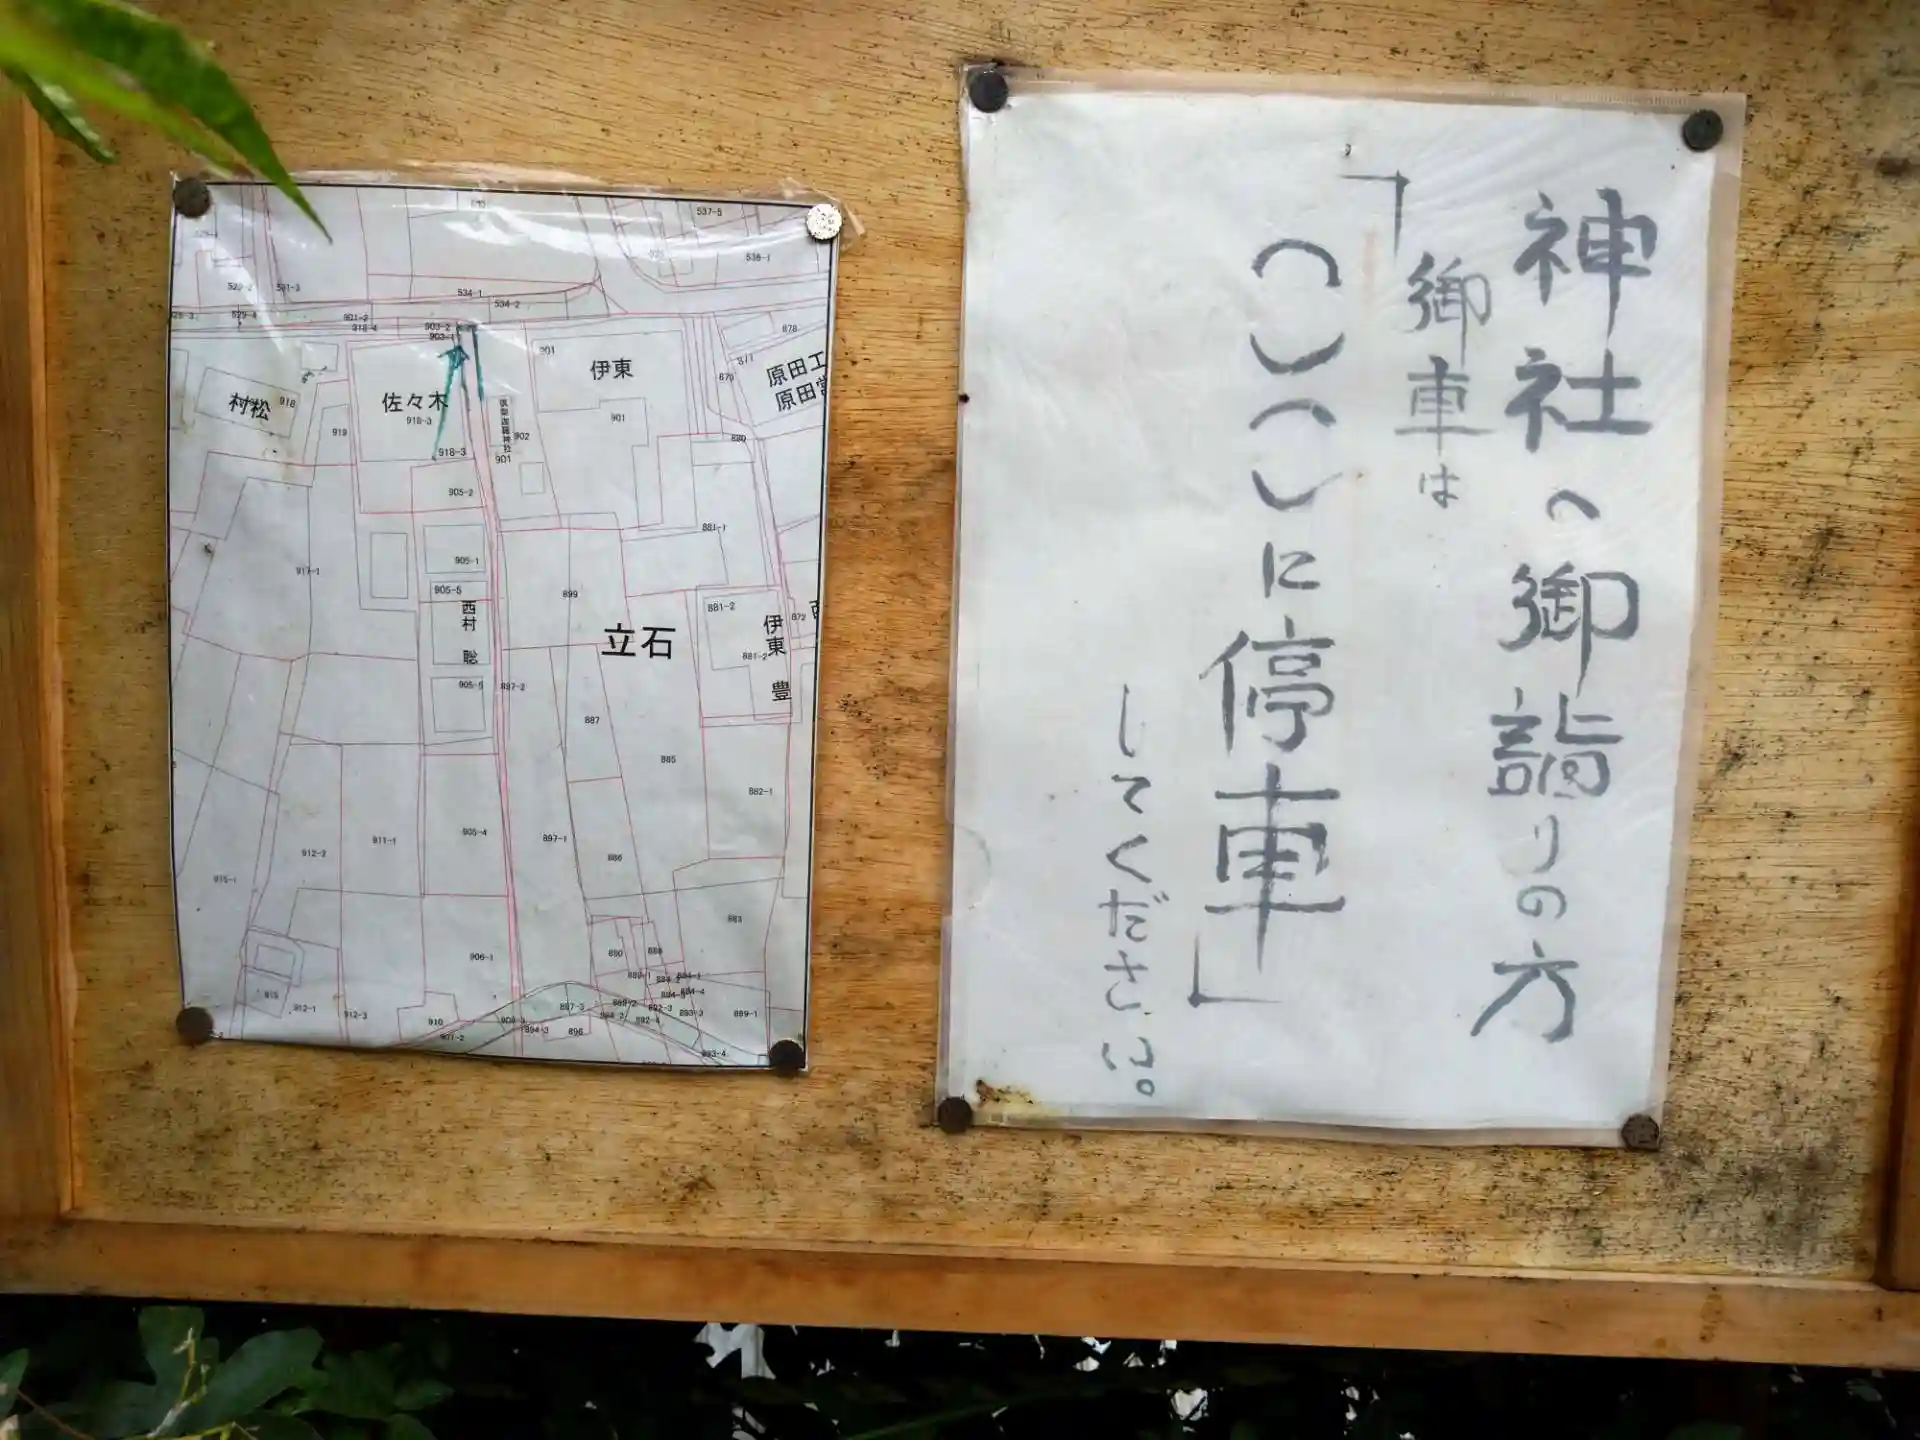 神社へ御詣りの方
「御車は
〇〇に停車」
してください。
537-5
536-1
531-3
529-4
534-1
534-2
901-2
918-4
903-2
903-1
901
878
原田工
原田営
伊東
901
村松
918
佐々木
918-3
919
918-3
902
901
880
905-2
881-1
917-1
905-1
905-5
西村 聡
899
立石
881-2
伊東 豊
881-2
872
905-5
897-2
887
885
882-1
905-4
897-1
886
911-1
912-2
915-1
883
906-1
890
888
889-1
884-1
912-1
912-3
910
907-2
897-3
894-3
896
892-3
892-4
889-1
893-4